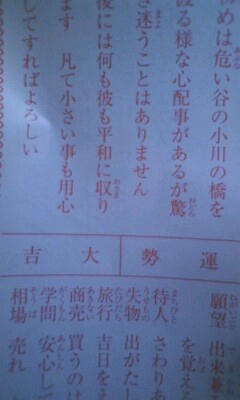 めは危い谷の小川の橋を
渡る様な心配事があるが驚
き迷うことはありません
後には何も彼も平和に収り
ます 凡て小さい事も用心
してすればよろしい
運勢 大吉
願望 出来兼
を覚え
待人 さわりあ
失物 出がたし
旅行 吉日をえ
商売 買うのは
学問 安心して
相場 売れ